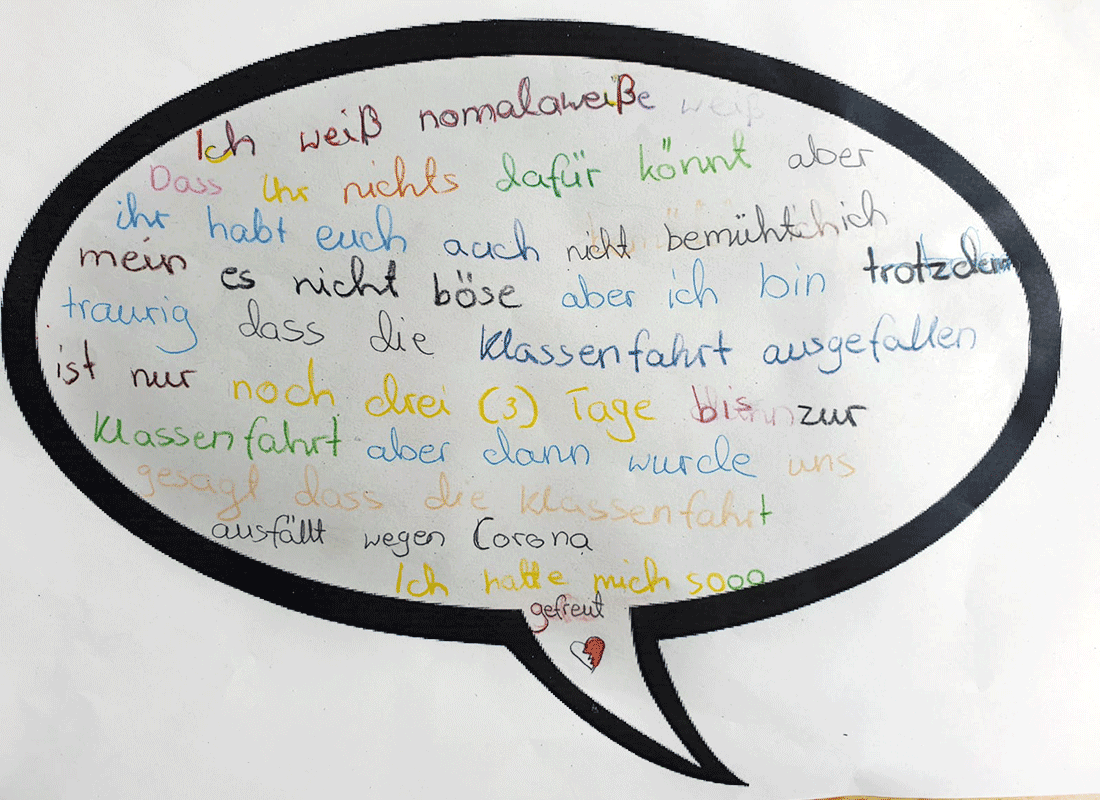 Ich weiß nomalaweiße weiß
Dass Ihr nichts dafür könnt aber
ihr habt euch auch nicht bemüht ich
mein es nicht böse aber ich bin trotzdem
traurig dass die Klassenfahrt ausgefallen
ist nur noch drei (3) Tage bis zur
Klassenfahrt aber dann wurde uns
gesagt dass die Klassenfahrt
ausfällt wegen Corona
Ich hatte mich sooo
gefreut